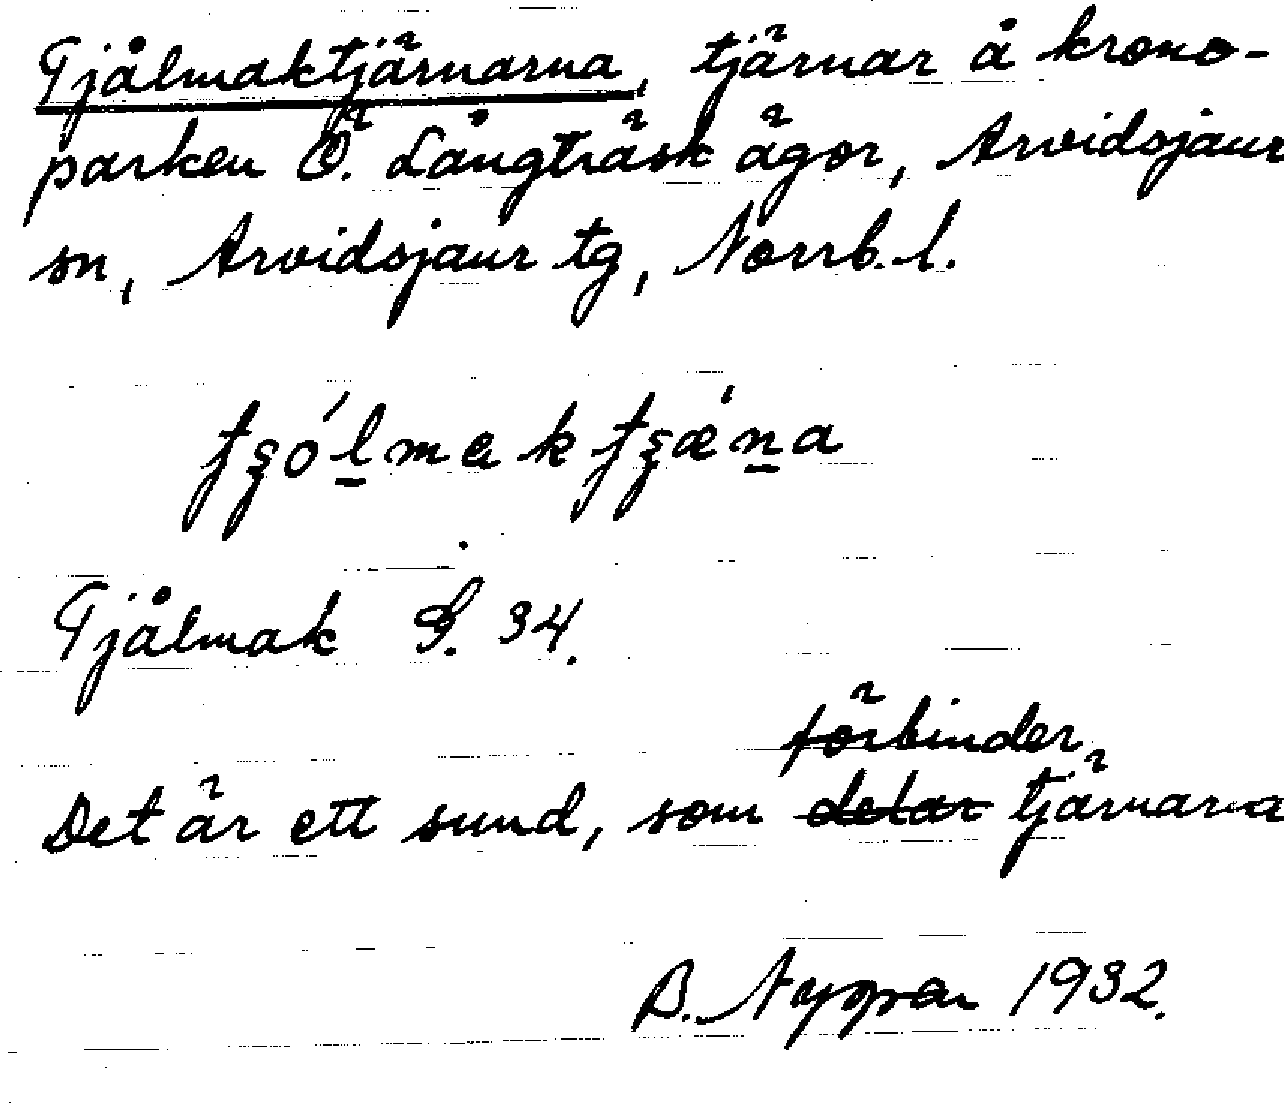 Tjålmaktjärnarna, tjärnar å krono-
parken Ö. Långträsk ägor, Arvidsjaur
sn, Arvidsjaur tg, Norrb. l.
tʂólmaktʂǽna
Tjålmak S. 34.
förbinder
Det är ett sund, som delar tjärnarna
B. 1932.